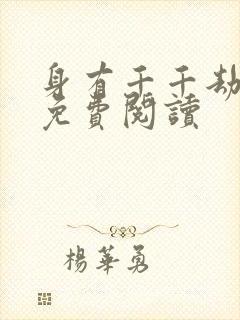 身有千千劫
免費閱讀
楊華勇